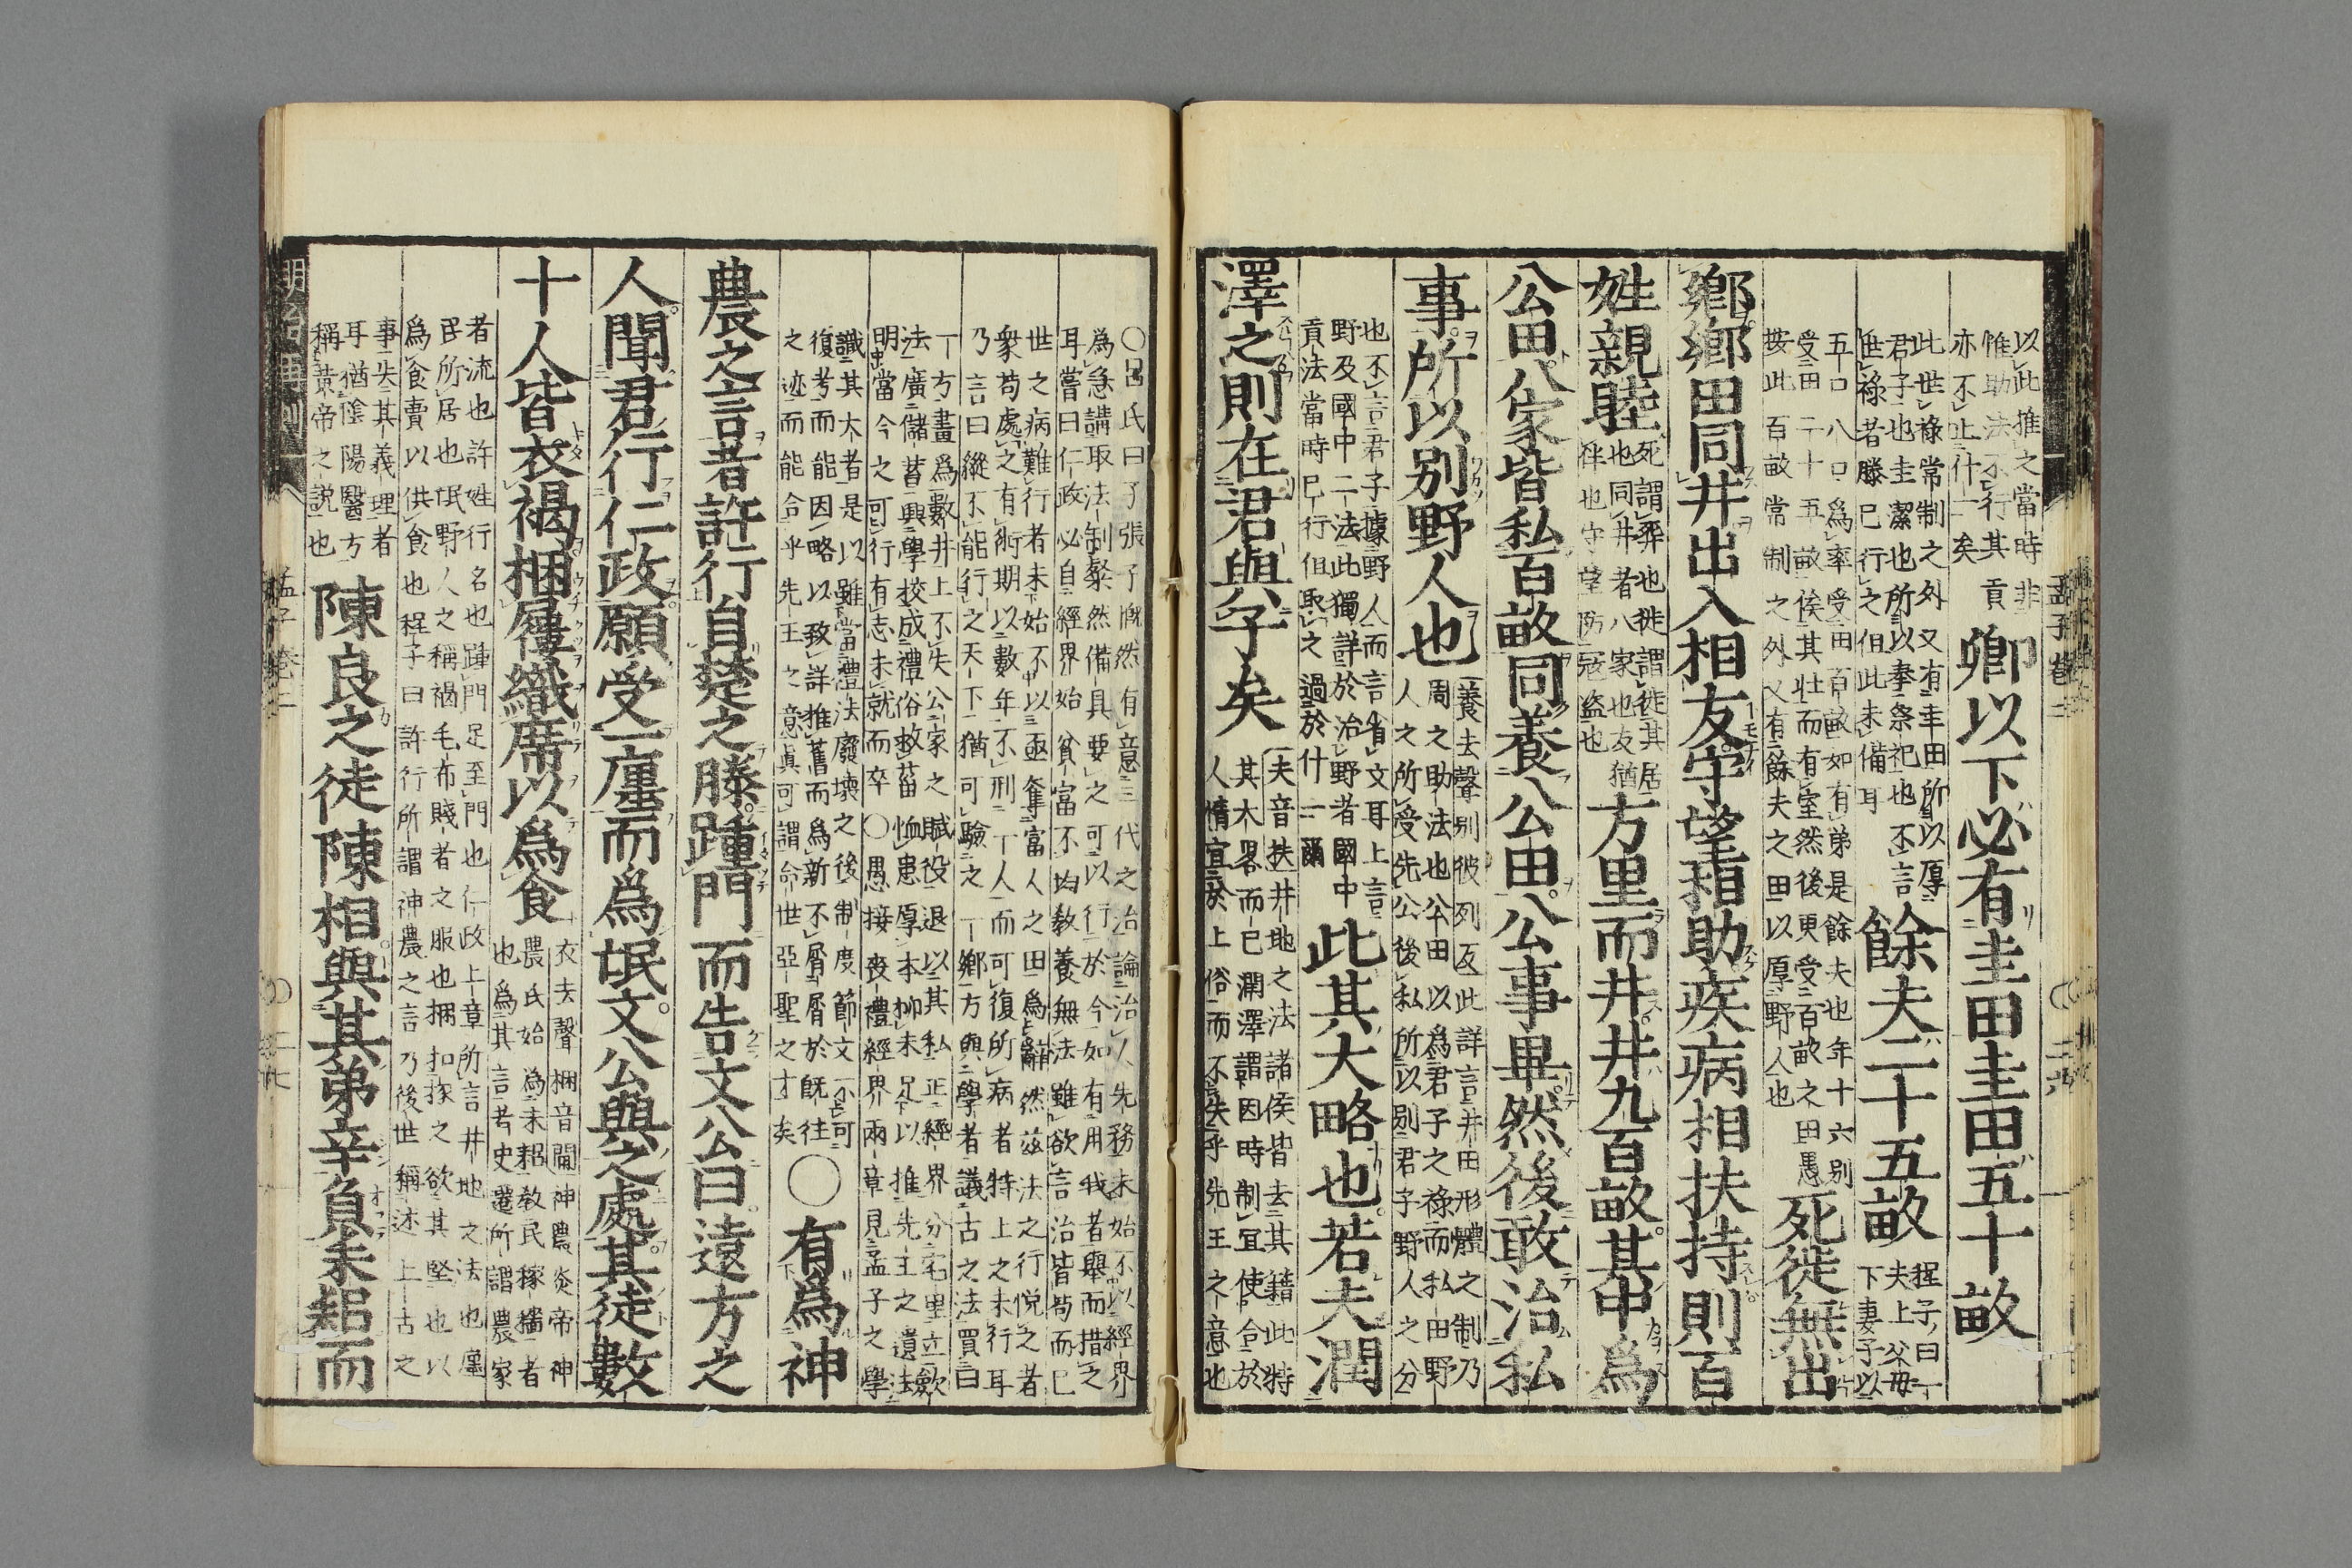 以此推之當時非
惟助法不行其貢
亦不止什一矣
卿以下必有圭田圭田五十畝
此世祿常制之外又有圭田所以厚
君子也圭潔也所以奉祭祀也不言
世祿者滕已行之但此未備耳
餘夫二十五畝
程子曰一
夫上父母
下妻子以
五口八口爲率受田百畝如有弟是餘夫也年十六別
受田二十五畝俟其壯而有室然後更受百畝之田愚
按此百畝常制之外又有餘夫之田以厚野人也
死徙無出
鄕鄕田同井出入相友守望相助疾病相扶持則百
姓親睦
死謂葬也徙謂徙其居
也同井者八家也友猶
伴也守望防寇盜也
方里而井井九百畝其中爲
公田八家皆私百畝同養公田公事畢然後敢治私
事所以別野人也
養去聲別彼列反此詳言井田形體之制乃
周之助法也公田以爲君子之祿而私田野
人之所受先公後私所以別君子野人之分
也不言君子據野人而言省文耳上言
野及國中二法此獨詳於治野者國中
貢法當時已行但取之過於什一爾
此其大略也若夫潤
澤之則在君與子矣
夫音扶井地之法諸侯皆去其籍此特
其大略而已潤澤謂因時制宜使合於
人情宜於土俗而不失乎先王之意也
孟子卷二
二十六
○呂氏曰子張子慨然有意三代之治論治人先務未始不以經界
爲急講求法制粲然備具要之可以行於今如有用我者舉而措之
耳嘗曰仁政必自經界始貧富不均教養無法雖欲言治皆苟而已
世之病難行者未始不以亟奪富人之田爲辭然茲法之行悅之者
衆苟處之有術期以數年不刑一人而可復所病者特上之未行耳
乃言曰縱不能行之天下猶可驗之一鄕方與學者議古之法買田
一方畫爲數井上不失公家之賦役退以其私正經界分宅里立斂
法廣儲蓄興學校成禮俗救菑恤患厚本抑末足以推先王之遺法
明當今之可行有志未就而卒○愚按喪禮經界兩章見孟子之學
識其大者是以雖當禮法廢壞之後制度節文不可
復考而能因略以致詳推舊而爲新不屑屑於既往
之迹而能合乎先王之意眞可謂命世亞聖之才矣
○有爲神
農之言者許行自楚之滕踵門而告文公曰遠方之
人聞君行仁政願受一廛而爲氓文公與之處其徒數
十人皆衣褐捆屨織席以爲食
衣去聲捆音閫神農炎帝神
農氏始爲耒耜教民稼穡者
也爲其言者史遷所謂農家
者流也許姓行名也踵門足至門也仁政上章所言井地之法也廛
民所居也氓野人之稱褐毛布賤者之服也捆扣㧻之欲其堅也以
爲食賣以供食也程子曰許行所謂神農之言乃後世稱述上古之
事失其義理者
耳猶陰陽醫方
稱黃帝之說也
陳良之徒陳相與其弟辛負耒耜而
孟子卷二
二十七